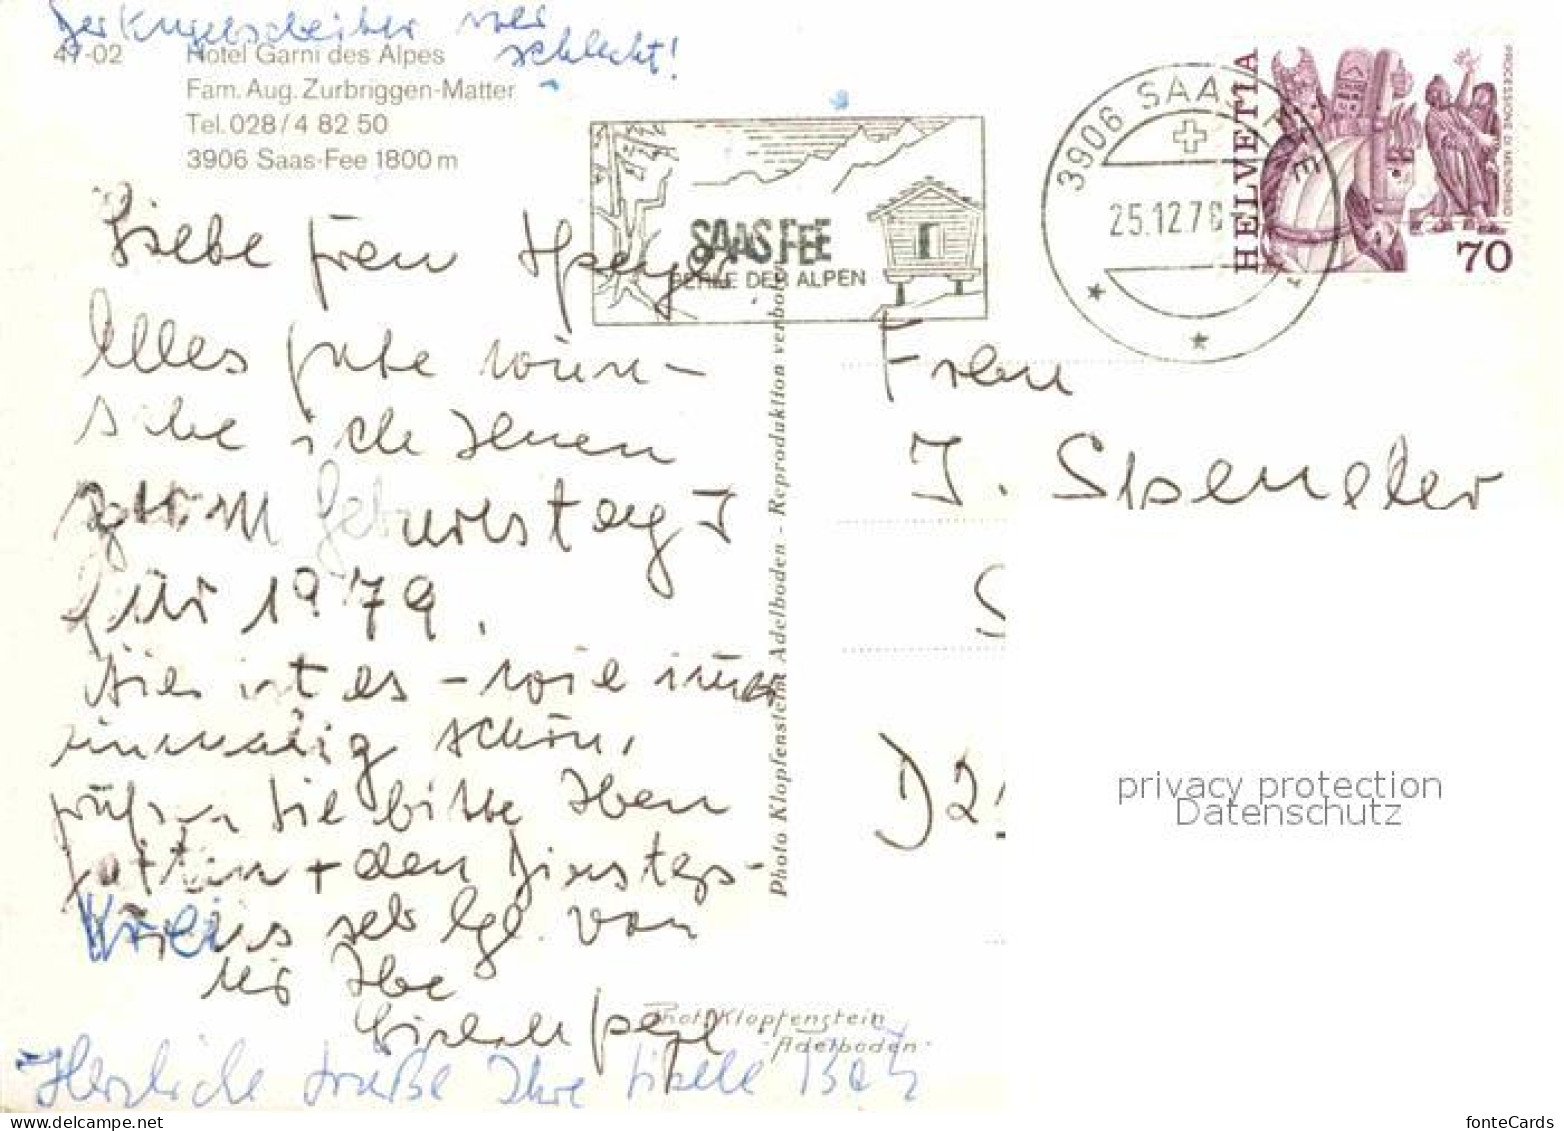 Der Kugelschreiber war
schlecht!
41-02
Hotel Garni des Alpes
Fam. Aug. Zurbriggen-Matter
Tel. 028/4 82 50
3906 Saas-Fee 1800 m
SAAS FEE
PERLE DER ALPEN
3906 SAAS-FEE
25.12.78
HELVETIA
PROCESSIONE DI MENDRISIO
70
Liebe Frau Spengler
Alles gute wün-
sche ich Ihnen
zum Geburtstag
für 1979.
Hier ist es - wie immer
einmalig schön,
grüßen Sie bitte Ihren
Gatten + den Dienstags-
Kreis sehr von
mir Ihre
Herzliche Grüße Ihre
Photo Klopfenstein Adelboden - Reproduktion verboten
Phot. Klopfenstein
Adelboden
Frau
J. Spengler
D 2
privacy protection
Datenschutz
fonteCards